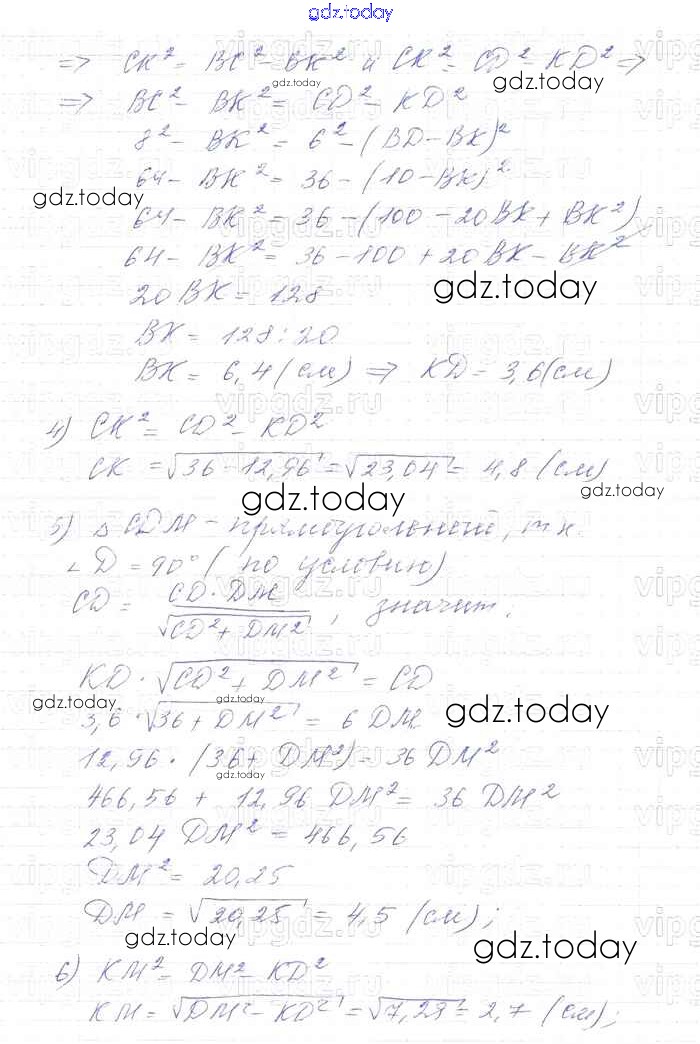 gdz.today
=> CK² = BC² - BK² и CK² = CD² - KD² =>
gdz.today
=> BC² - BK² = CD² - KD²
8² - BK² = 6² - (BD - BK)²
64 - BK² = 36 - (10 - BK)²
gdz.today
64 - BK² = 36 - (100 - 20BK + BK²)
64 - BK² = 36 - 100 + 20BK - BK²
20BK = 128
gdz.today
BK = 128 : 20
BK = 6,4 (см) => KD = 3,6 (см)
4) CK² = CD² - KD²
CK = √36 - 12,96 = √23,04 = 4,8 (см)
gdz.today
gdz.today
5) △CDM - прямоугольный, т.к.
∠D = 90° (по условию)
CD = CD · DM / √CD² + DM², значит,
KD · √CD² + DM² = CD
gdz.today
gdz.today
3,6 · √36 + DM² = 6 DM
12,96 · (36 + DM²) = 36 DM²
gdz.today
466,56 + 12,96 DM² = 36 DM²
23,04 DM² = 466,56
DM² = 20,25
DM = √20,25 = 4,5 (см);
gdz.today
gdz.today
6) KM² = DM² - KD²
KM = √DM² - KD² = √7,29 = 2,7 (см);